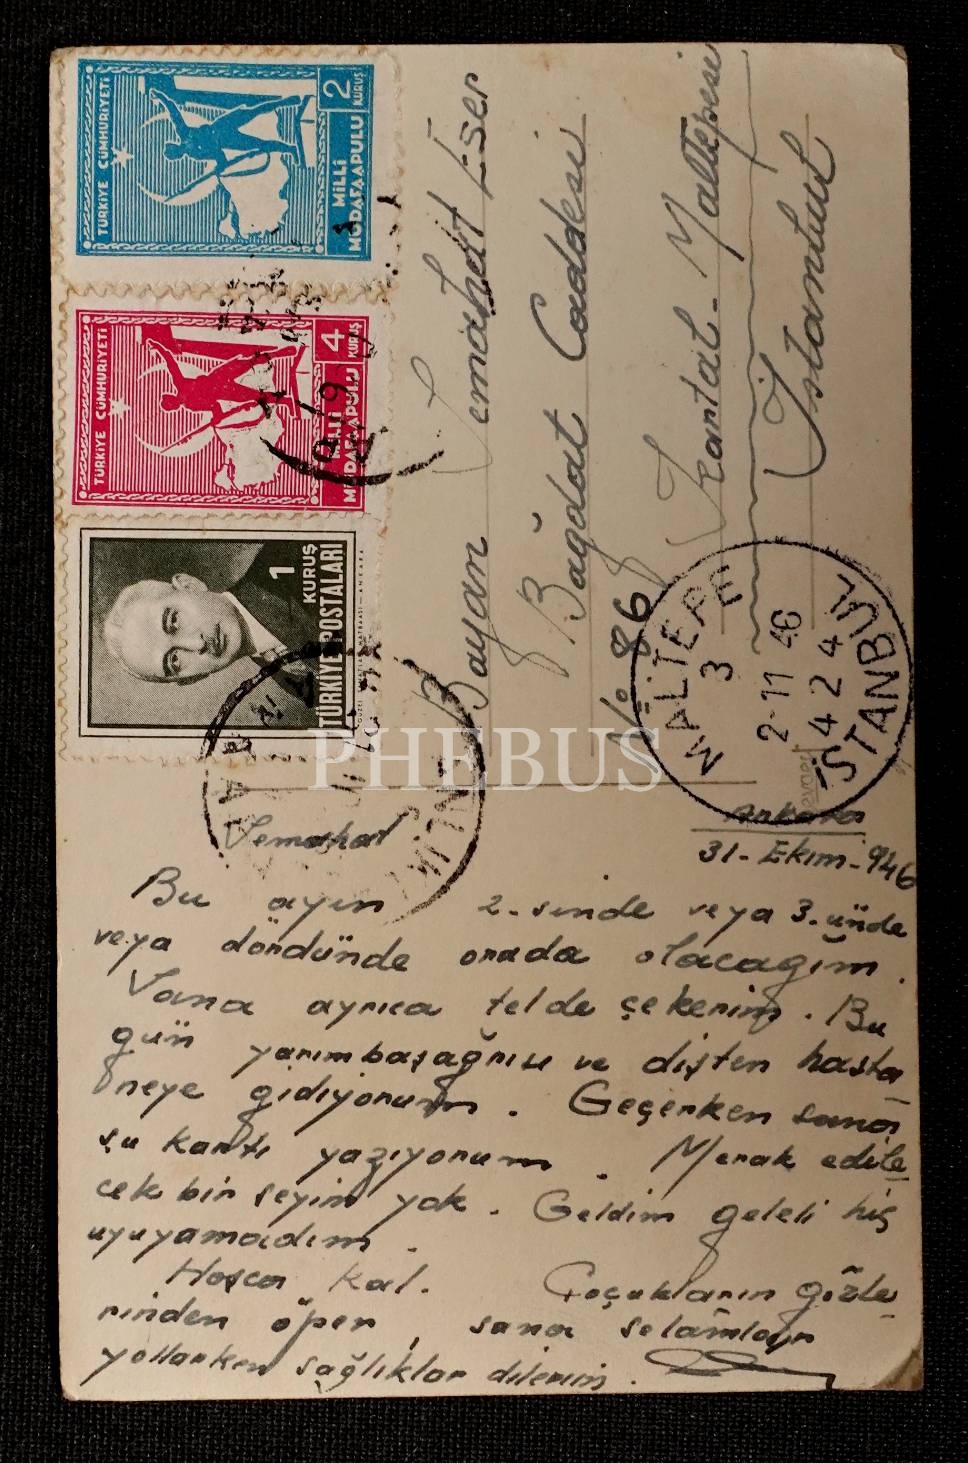 TÜRKİYE CÜMHURİYETİ
2
KURUŞ
MİLLİ
MÜDAFAA PULU
TÜRKİYE CÜMHURİYETİ
4
KURUŞ
MİLLİ
MÜDAFAA PULU
1
KURUŞ
TÜRKİYE POSTALARI
Bayan Semahat
Bağdat Caddesi
No 86
Kartal - Maltepesi
Istanbul
MALTEPE
3
2-11 46
4 2 4
İSTANBUL
PHEBUS
Ankara
31-Ekim-946
Semahat
Bu ayın 2.sinde veya 3.ünde
veya dördünde orada olacağım.
Sana ayrıca telde çekerim. Bu
gün yarımbaşağrısı ve dişten hasta
neye gidiyorum. Geçerken sana
şu kartı yazıyorum. Merak edile
cek bir şeyim yok. Geldim geleli hiç
uyuyamadım.
Hoşca kal. Çocukların gözle
rinden öper, sana selâmlar
yollarken sağlıklar dilerim.